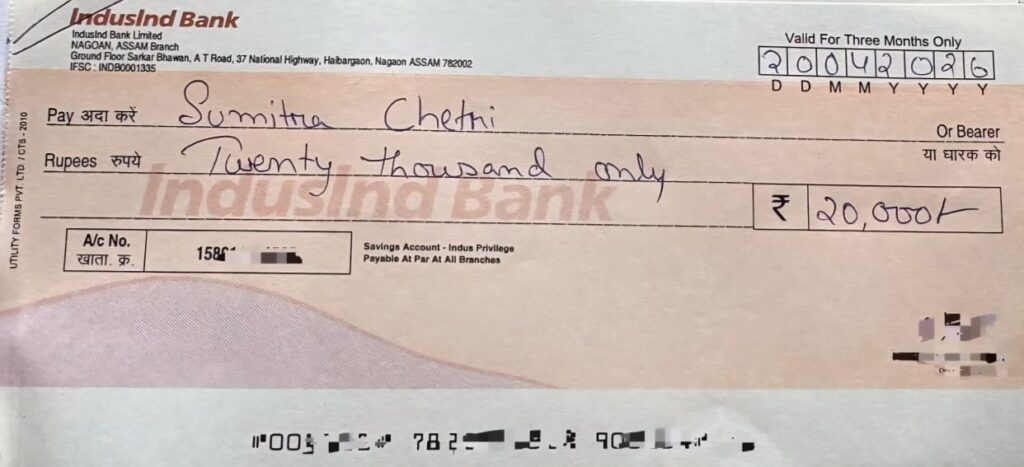 IndusInd Bank
IndusInd Bank Limited
NAGOAN, ASSAM Branch
Ground Floor Sarkar Bhawan, A T Road, 37 National Highway, Haibargaon, Nagaon ASSAM 782002
IFSC : INDB0001335
Valid For Three Months Only
20042026
D D M M Y Y Y Y
Pay अदा करें Sumitra Chetri
Or Bearer
या धारक को
Rupees रुपये Twenty thousand only
IndusInd Bank
₹ 20,000/-
A/c No.
खाता. क्र.
Savings Account - Indus Privilege
Payable At Par At All Branches
UTILITY FORMS PVT. LTD. / CTS - 2010